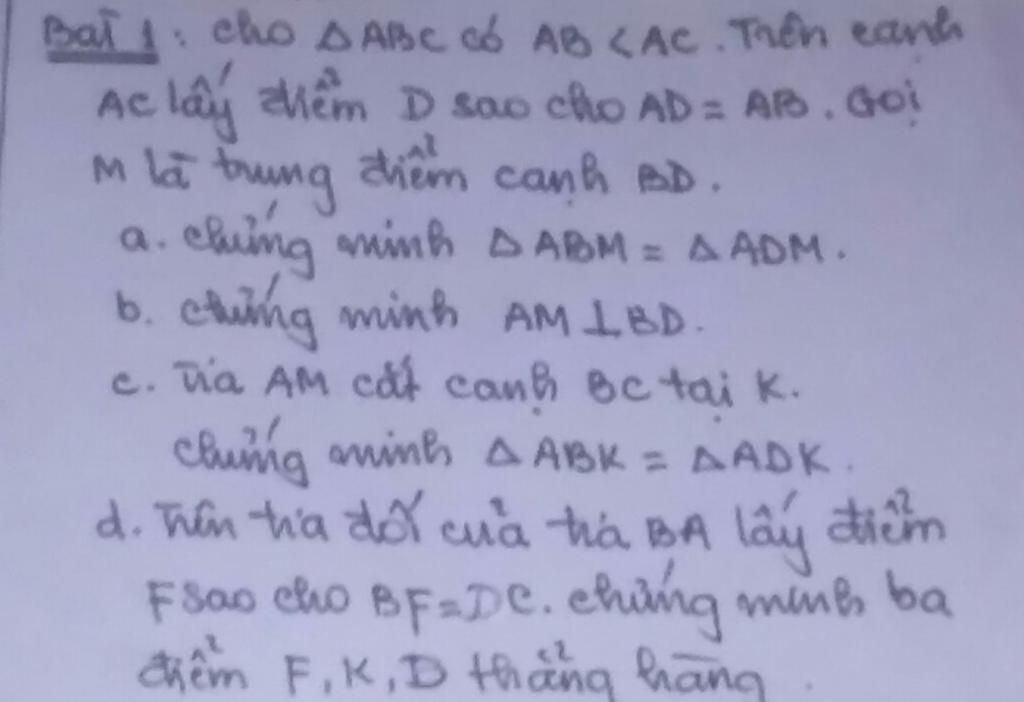 Bài 1: cho △ABC có AB < AC. Trên cạnh
AC lấy điểm D sao cho AD = AB. Gọi
M là trung điểm cạnh BD.
a. chứng minh △ABM = △ADM.
b. chứng minh AM ⊥ BD.
c. Tia AM cắt cạnh BC tại K.
chứng minh △ABK = △ADK.
d. Trên tia đối của tia BA lấy điểm
F sao cho BF = DC. chứng minh ba
điểm F, K, D thẳng hàng.